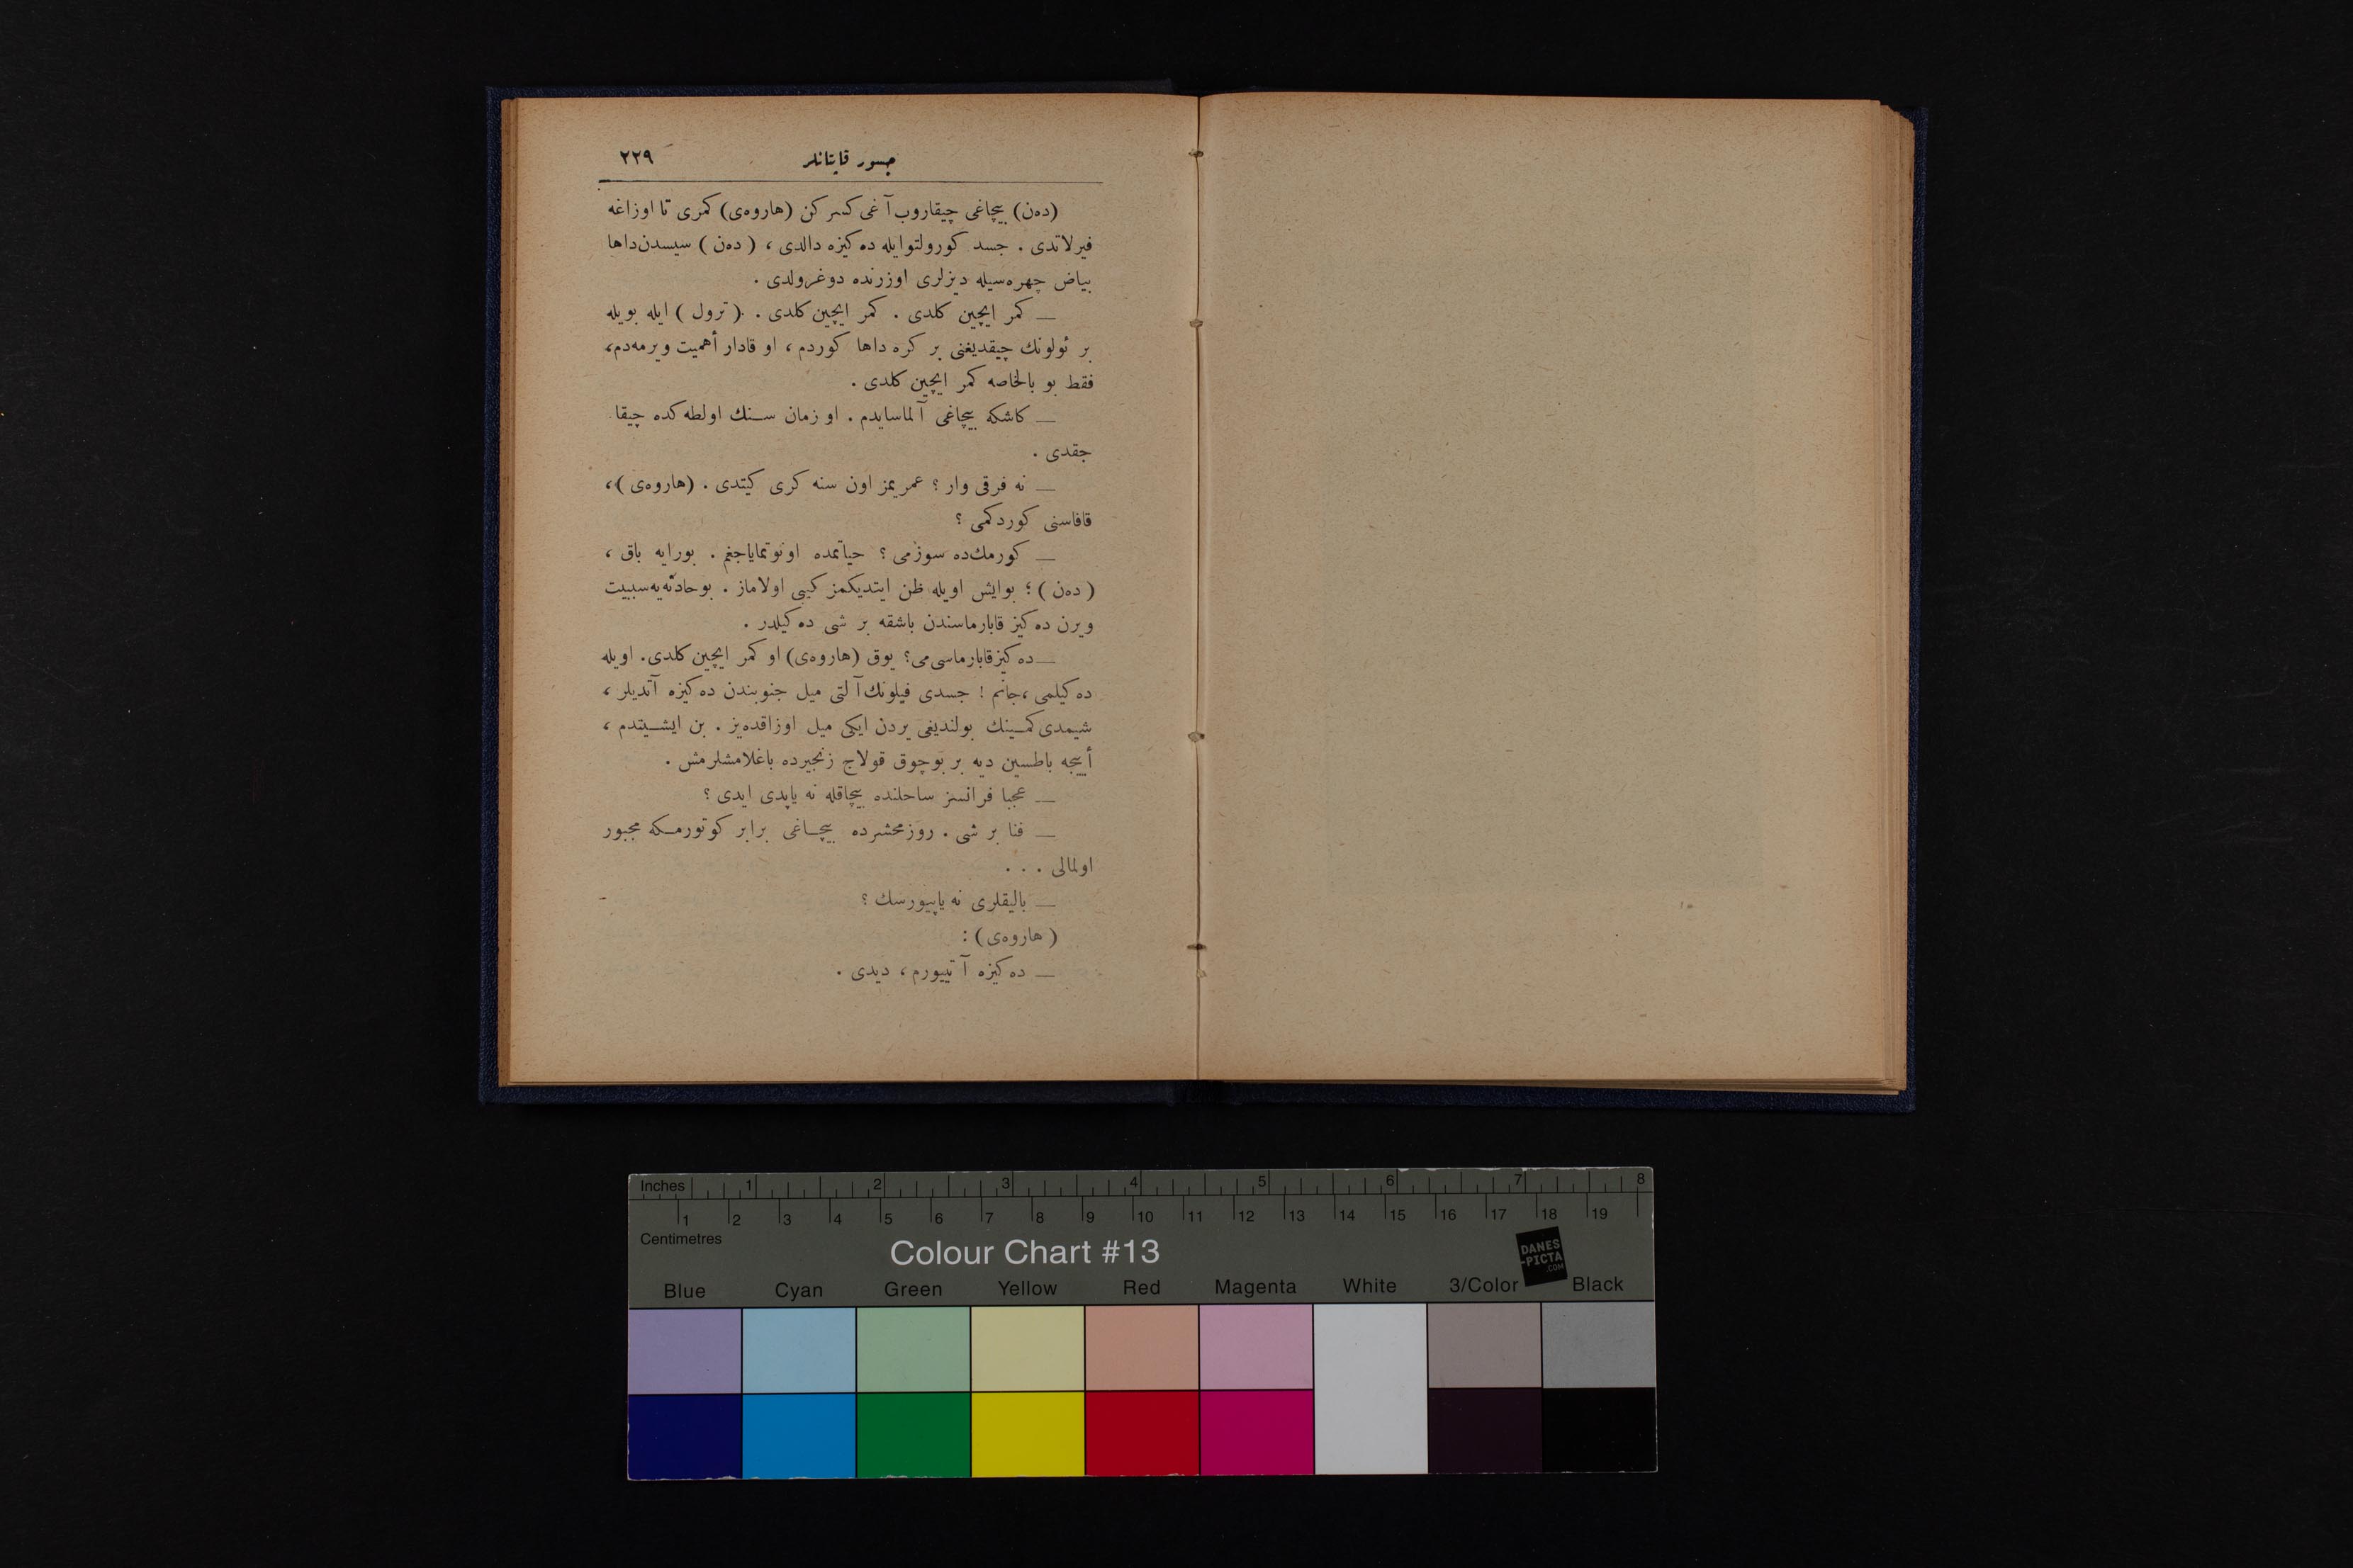 جسور قاپتانلر ٢٢٩
(ده‌ن) بیچاغی چیقاروب آغی کسر کن (هاروه‌ی) کمری تا اوزاغه
فیرلاتدی . جسد کورولتوایله ده کیزه دالدی ، (ده‌ن) سیسدن داها
بیاض چهره‌سیله دیزلری اوزرنده دوغرولدی .
— کمر ایچین کلدی . کمر ایچین کلدی . (ترول) ایله بویله
بر ئولونك چیقدیغنی بر کره داها کوردم ، او قادار أهمیت ویرمه‌دم،
فقط بو بالخاصه کمر ایچین کلدی .
— کاشکه بیچاغی آلماسایدم . او زمان سنك اولطه کده چیقا
جقدی .
— نه فرقی وار ؟ عمریمز اون سنه کری کیتدی . (هاروه‌ی)،
قافاسنی کوردکمی ؟
— کورمك‌ده سوزمی ؟ حیاتمده اونوتمایاجغم . بورایه باق ،
(ده‌ن) ؛ بوایش اویله ظن ایتدیکمز کیبی اولاماز . بوحادثه‌یه‌سببیت
ویرن ده کیز قابارماسندن باشقه بر شی ده کیلدر .
— ده کیز قابارماسی می؟ یوق (هاروه‌ی) او کمر ایچین کلدی. اویله
ده کیلمی ،جانم ! جسدی فیلونك آلتی میل جنوبندن ده کیزه آتدیلر ،
شیمدی کمینك بولندیغی یردن ایکی میل اوزاقده‌یز . بن ایشیتدم ،
أییجه باطسین دیه بر بوچوق قولاج زنجیرده باغلامشلرمش .
— عجبا فرانسز ساحلنده بیچاقله نه یاپدی ایدی ؟
— فنا بر شی . روزمحشرده بیچاغی برابر کوتورمکه مجبور
اولمالی . . .
— بالیقلری نه یاپیورسك ؟
(هاروه‌ی) :
— ده کیزه آتییورم ، دیدی .
Inches 1 2 3 4 5 6 7 8
1 2 3 4 5 6 7 8 9 10 11 12 13 14 15 16 17 18 19
Centimetres
Colour Chart #13
DANES
-PICTA
.COM
Blue Cyan Green Yellow Red Magenta White 3/Color Black